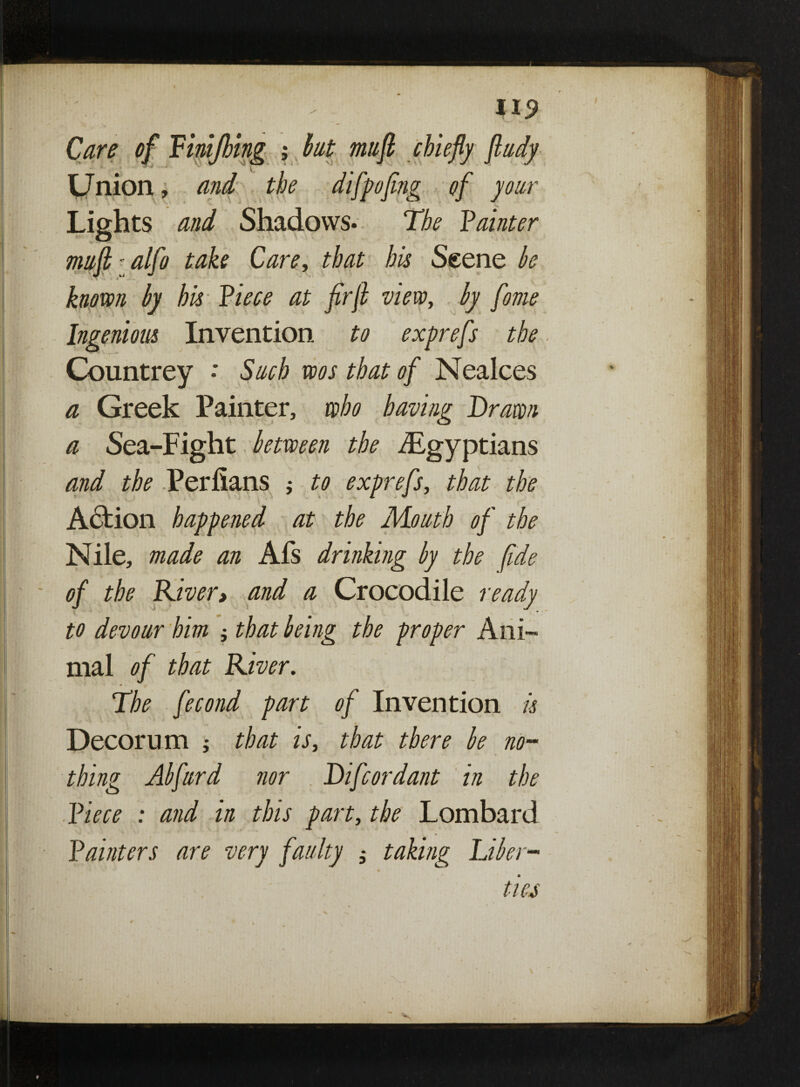 119
Care of Finiſhing ; but muſt chiefly ſtudy
Union, and the diſpoſing of your
Lights and Shadows. The Painter
muſt alſo take Care, that his Scene be
known by his Piece at firſt view, by ſome
Ingenious Invention to expreſs the
Countrey : Such wos that of Nealces
a Greek Painter, who having Drawn
a Sea-Fight between the Ægyptians
and the Perſians ; to expreſs, that the
Action happened at the Mouth of the
Nile, made an Aſs drinking by the ſide
of the River, and a Crocodile ready
to devour him ; that being the proper Ani-
mal of that River.
The ſecond part of Invention is
Decorum ; that is, that there be no-
thing Abſurd nor Diſcordant in the
Piece : and in this part, the Lombard
Painters are very faulty ; taking Liber-
ties